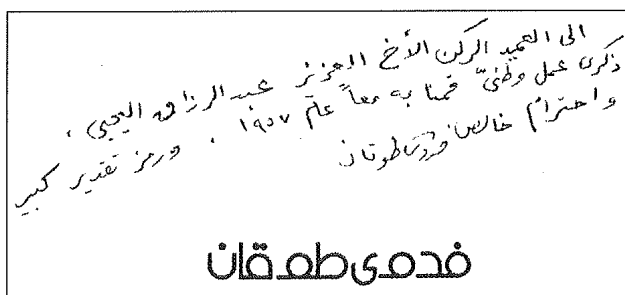 الى العميد الركن الأخ العزيز عبد الرزاق اليحيى ،
ذكرى عمل وطنيّ قمنا به معاً عام ١٩٥٧ ، ورمز تقدير كبير
واحترام خالص فدوى طوقان
فدوى طوقان